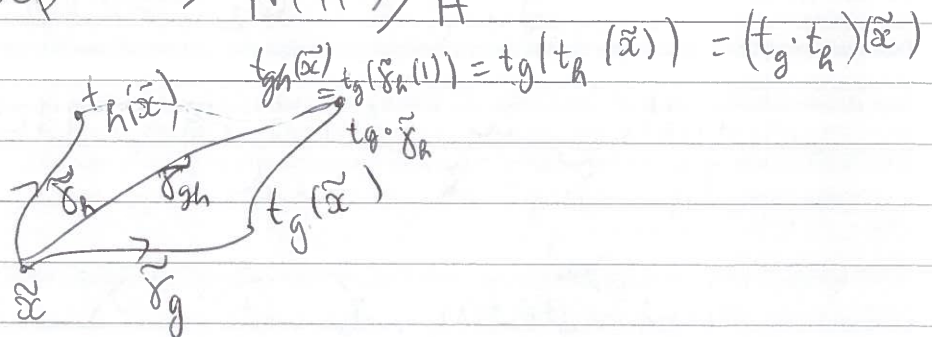 t_{gh}(x̃) = t_g(γ̃_h(1)) = t_g(t_h(x̃)) = (t_g · t_h)(x̃)
t_h(x̃)
t_g ∘ γ̃_h
γ̃_h
γ̃_{gh}
t_g(x̃)
x̃
γ̃_g